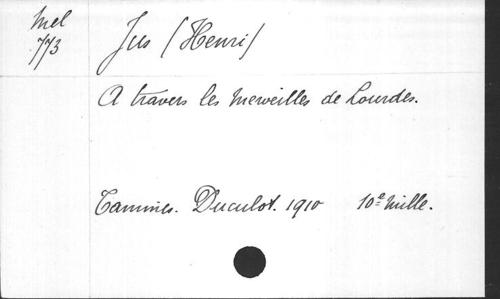 Mel
773
Jus (Henri)
A travers les Merveilles de Lourdes.
Tamines. Duculot. 1910 10e mille.